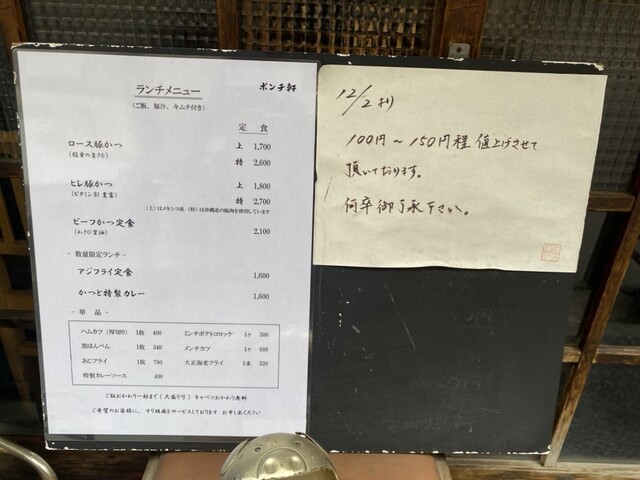 ランチメニュー
ポンチ軒
（ご飯、豚汁、キムチ付き）
定 食
ロース豚かつ 上 1,700
（脂身の旨さを） 特 2,600
ヒレ豚かつ 上 1,800
（ビタミンB1 豊富） 特 2,700
（上）はメキシコ産 （特）は沖縄産の豚肉を使用しています
ビーフかつ定食
（わさび醤油） 2,100
- 数量限定ランチ -
アジフライ定食 1,600
かつと特製カレー 1,600
- 単 品 -
ハムカツ（厚切り） 1枚 400 ミンチポテトコロッケ 1ヶ 500
黒はんぺん 1枚 340 メンチカツ 1ヶ 680
あじフライ 1枚 780 大正海老フライ 1本 520
特製カレーソース 400
ご飯おかわり一杯まで（大盛り可）キャベツおかわり無料
ご希望のお客様に、すり胡麻をサービスしております お申し出ください
12/2より
100円〜150円程 値上げさせて
頂いております。
何卒御了承下さい。